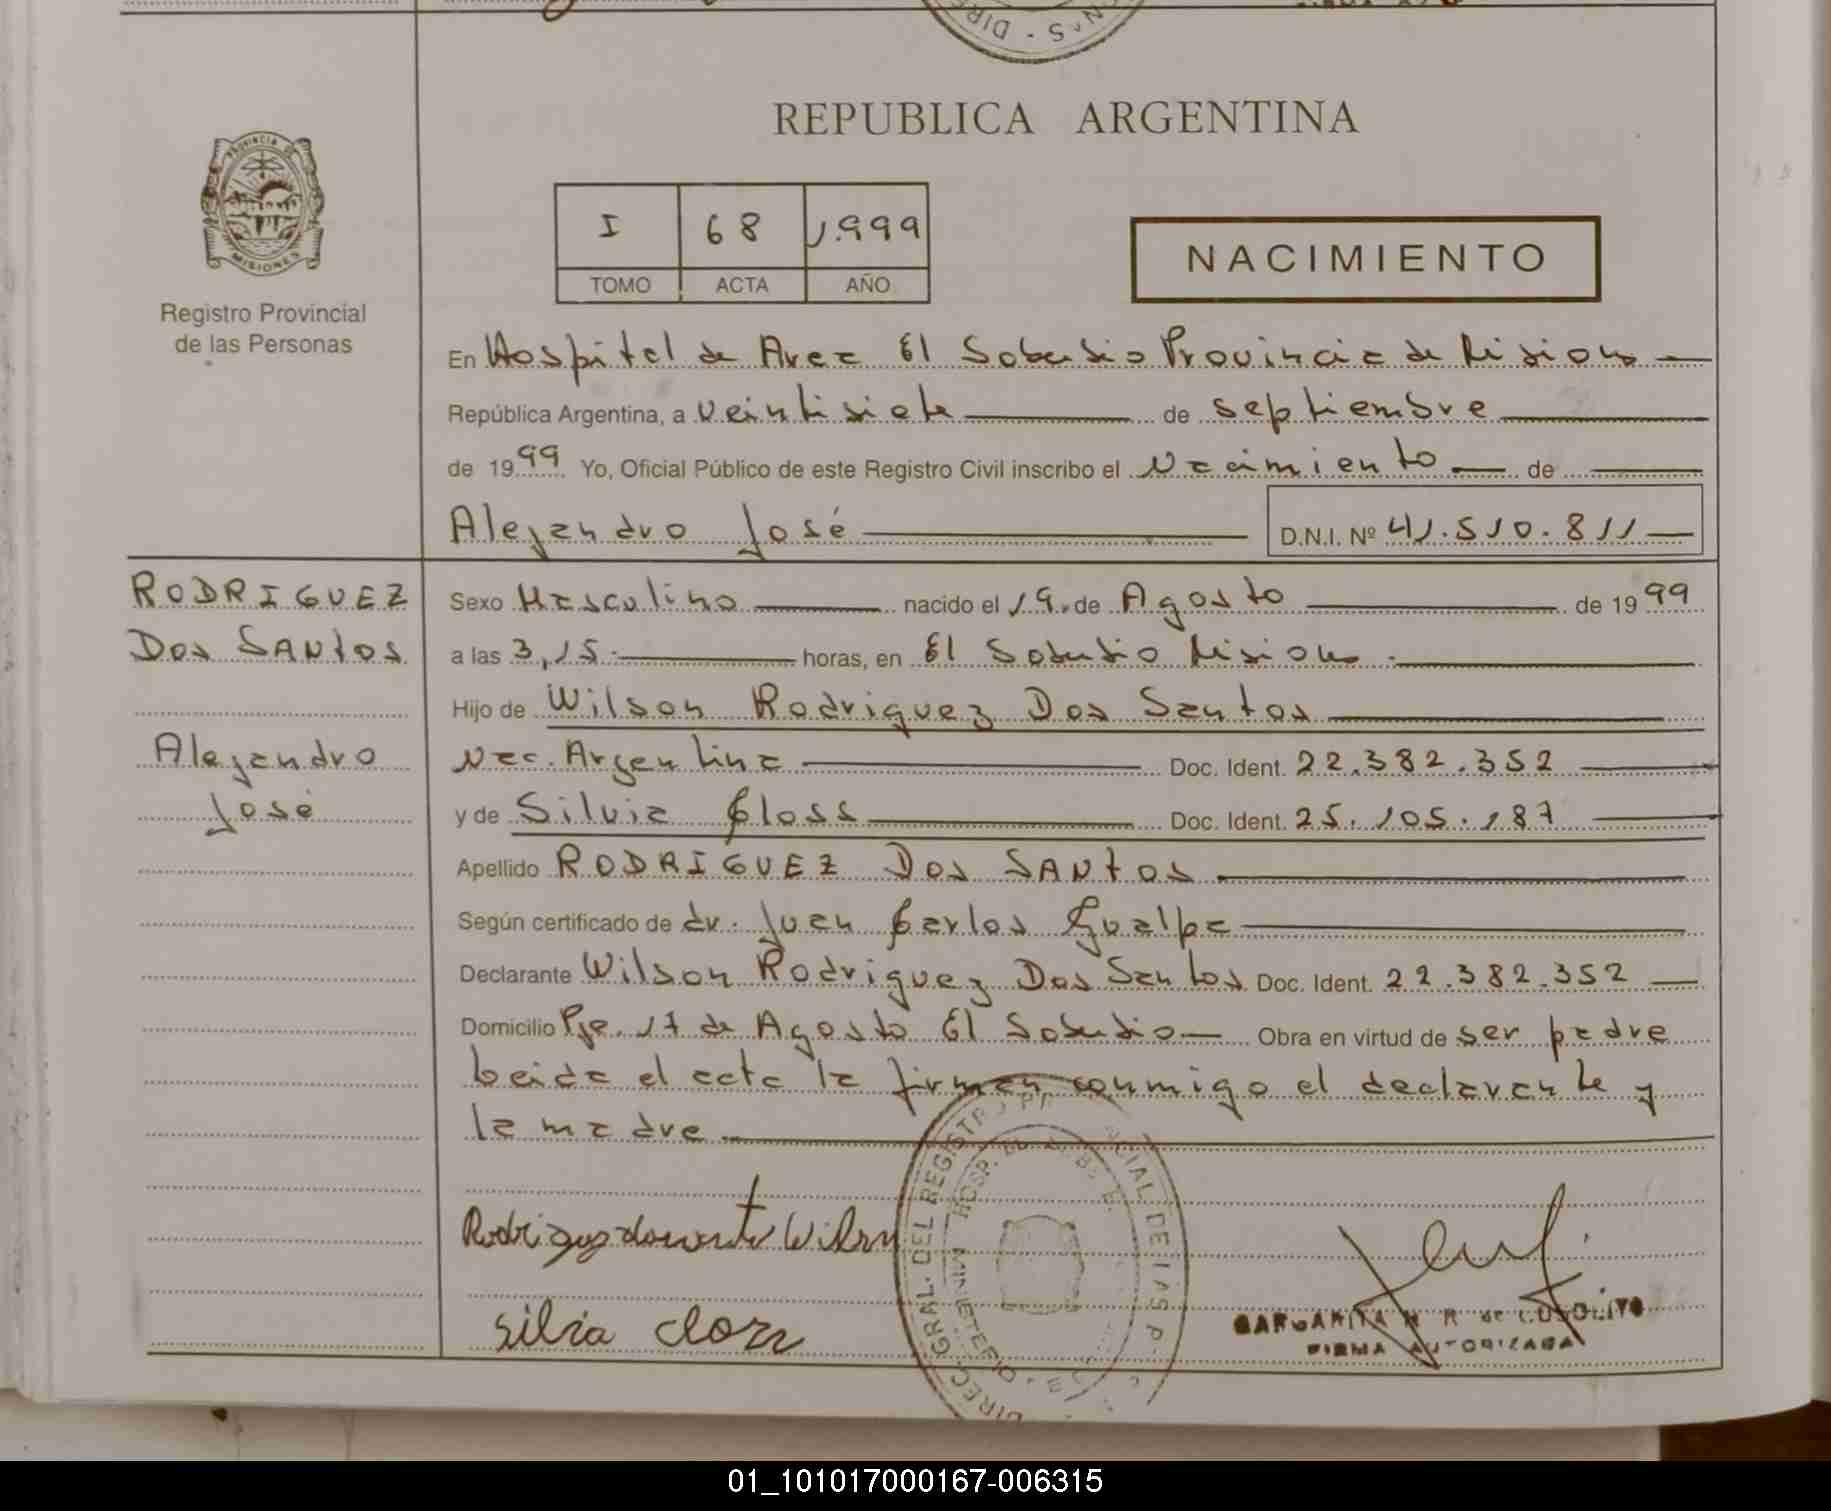 REPUBLICA ARGENTINA
PROVINCIA DE
MISIONES
Registro Provincial
de las Personas
I 68 1.999
TOMO ACTA AÑO
NACIMIENTO
En Hospital de Area El Soberbio Provincia de Misiones
República Argentina, a veintisiete de septiembre
de 1999 Yo, Oficial Público de este Registro Civil inscribo el Nacimiento de
Alejandro José D.N.I. Nº 41.510.811
RODRIGUEZ
Dos SANtos
Alejandro
José
Sexo Masculino nacido el 19. de Agosto de 1999
a las 3,15 horas, en El Soberbio Misiones
Hijo de Wilson Rodriguez Dos Santos
Nac. Argentina Doc. Ident. 22.382.352
y de Silvia Closs Doc. Ident. 25.105.187
Apellido RODRIGUEZ Dos SANtos
Según certificado de dr. Juan Carlos Gualpa
Declarante Wilson Rodriguez Dos Santos Doc. Ident. 22.382.352
Domicilio Pje. 17 de Agosto El Soberbio Obra en virtud de ser padre
Leida el acta la firman conmigo el declarante y
la madre
Rodriguez dos santo Wilson
silvia closs
DIREC. GRAL. DEL REGISTRO PROVINCIAL DE LAS P
HOSP.
FIRMA AUTORIZADA
01_101017000167-006315